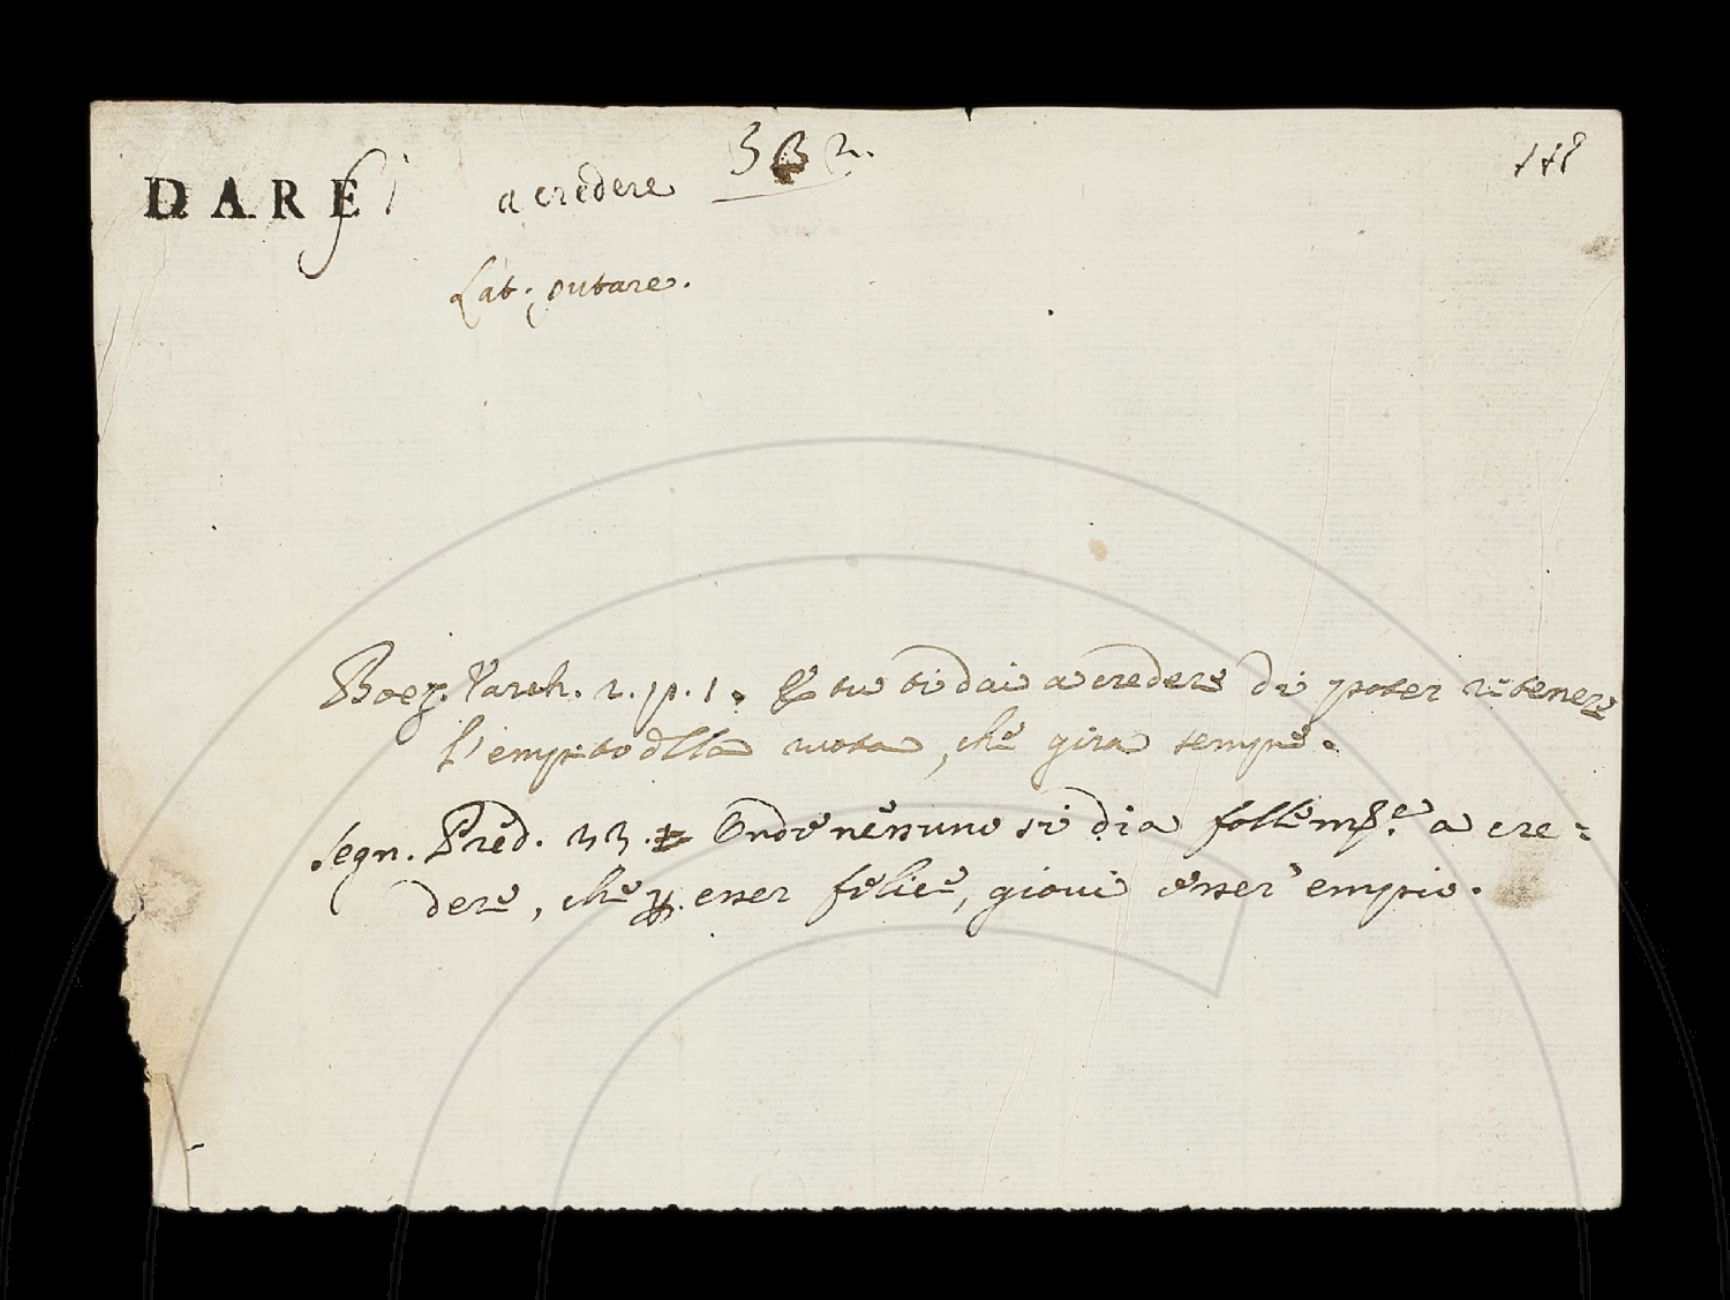 DARsi a credere 332. 118
Lat. putare.
Boez. Varch. 2. p. 1. E tu ti dai a credere di poter ritenere
l'empito dlla ruota, che gira sempre.
Segn. Pred. 33. Onde nessuno si dia follemte. a cre=
dere, che p. esser felice, giovi esser' empio.